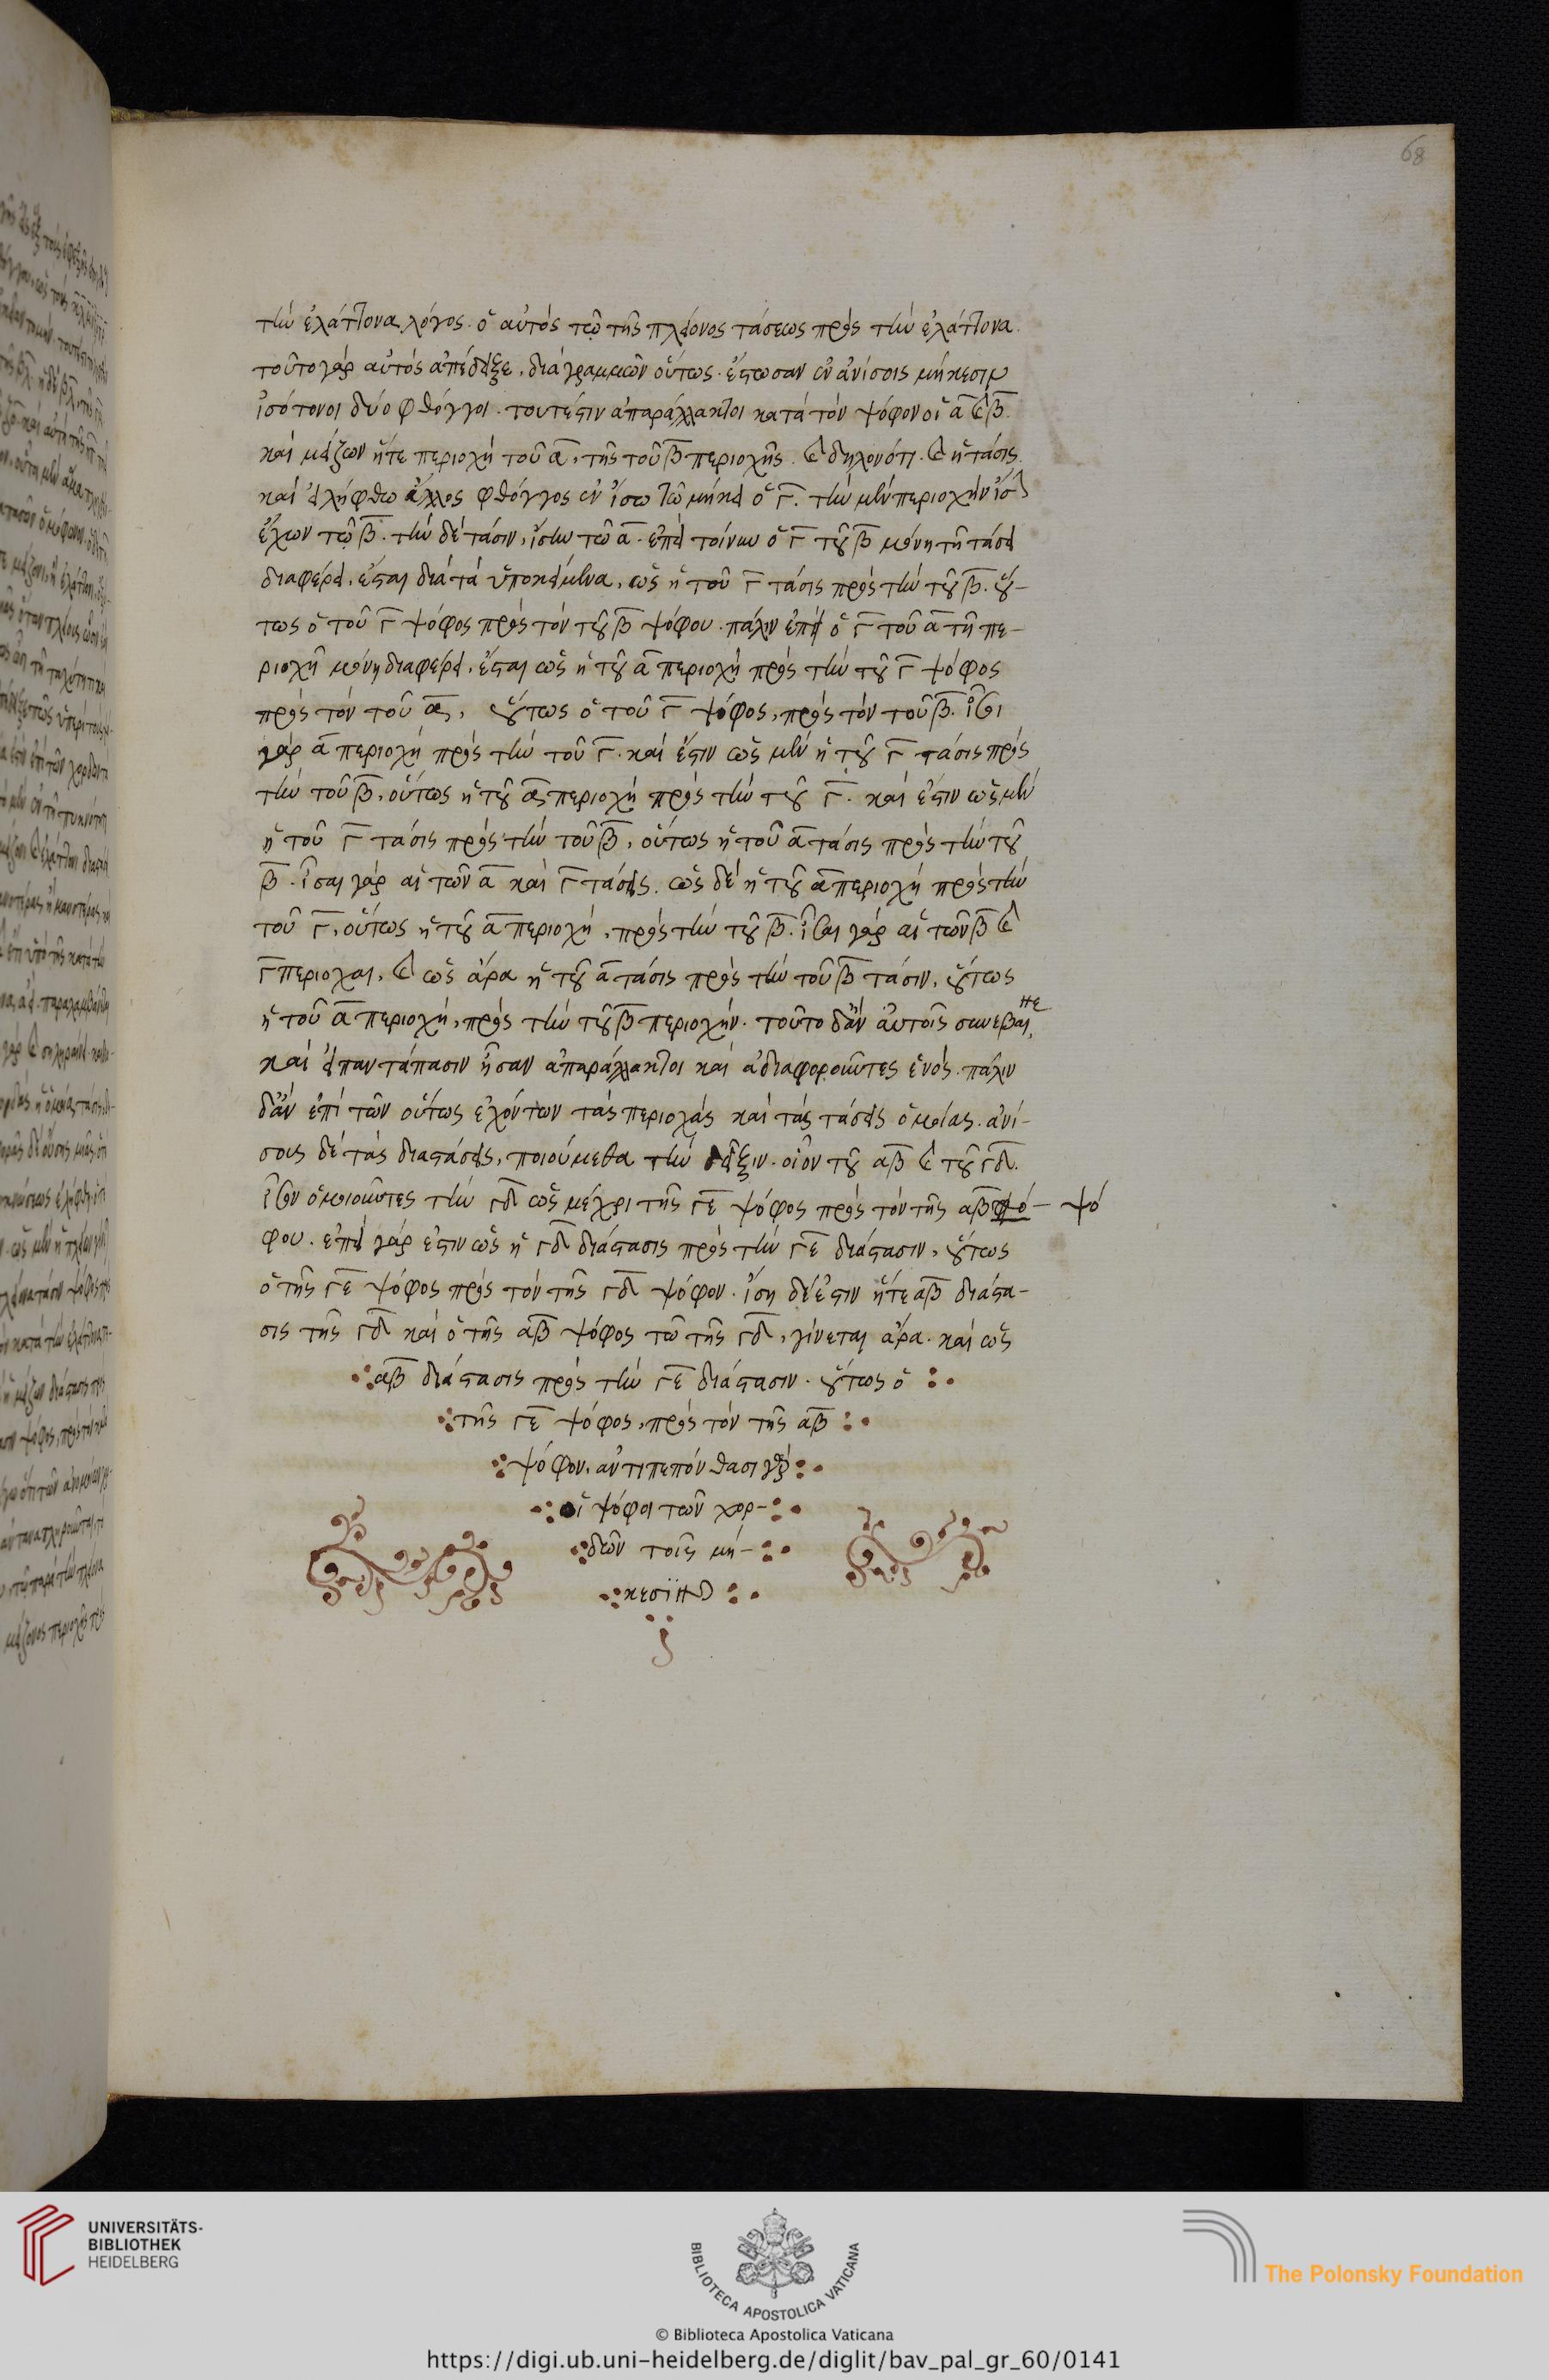 68
τὴν ἐλάττονα λόγος. ὁ αὐτός τῷ τῆς πλείονος τάσεως πρὸς τὴν ἐλάττονα.
τοῦτο γὰρ αὐτὸς ἀπέδειξε, διὰ γραμμῶν οὕτως. ἔστωσαν ἐν ἀνίσοις μήκεσιν
ἰσότονοι δύο φθόγγοι. τουτέστιν ἀπαράλλακτοι κατὰ τὸν ψόφον οἱ α καὶ β.
καὶ μείζων ἥτε περιοχὴ τοῦ α, τῆς τοῦ β περιοχῆς. καὶ δηλονότι. καὶ ἡ τάσις.
καὶ εἰλήφθω ἄλλος φθόγγος ἐν ἴσω τῶ μήκει ὁ γ. τὴν μὲν περιοχὴν ἴσ
ἔχων τῷ β. τὴν δὲ τάσιν, ἴσην τῶ α. ἐπεὶ τοίνυν ὁ γ τοῦ β μόνη τῆ τάσει
διαφέρει, ἔσται διὰ τὰ ὑποκείμενα, ὡς ἡ τοῦ γ τάσις πρὸς τὴν τοῦ β. οὕ-
τως ὁ τοῦ γ ψόφος πρὸς τὸν τοῦ β ψόφου. πάλιν ἐπεὶ ὁ γ τοῦ α τῆ πε-
ριοχῆ μόνη διαφέρει, ἔσται ὡς ἡ τοῦ α περιοχὴ πρὸς τὴν τοῦ γ ψόφος
πρὸς τὸν τοῦ α, οὕτως ὁ τοῦ γ ψόφος, πρὸς τὸν τοῦ β. ἴσοι
γὰρ α περιοχὴ πρὸς τὴν τοῦ γ. καὶ ἔστιν ὡς μὲν ἡ τοῦ γ τάσις πρὸς
τὴν τοῦ β, οὕτως ἡ τοῦ α περιοχὴ πρὸς τὴν τοῦ γ. καὶ ἔστιν ὡς μὲν
ἡ τοῦ γ τάσις πρὸς τὴν τοῦ β, οὕτως ἡ τοῦ α τάσις πρὸς τὴν τοῦ
β. ἴσαι γὰρ αἱ τῶν α καὶ γ τάσεις. ὡς δὲ ἡ τοῦ α περιοχὴ πρὸς τὴν
τοῦ γ, οὕτως ἡ τοῦ α περιοχὴ, πρὸς τὴν τοῦ β. ἴσαι γὰρ αἱ τῶν β καὶ
γ περιοχαι, καὶ ὡς ἄρα ἡ τοῦ α τάσις πρὸς τὴν τοῦ β τάσιν, οὕτως
ἡ τοῦ α περιοχὴ, πρὸς τὴν τοῦ β περιοχὴν. τοῦτο δ' ἂν αὐτοῖς συνέβαινε,
καὶ εἰ παντάπασιν ἦσαν ἀπαράλλακτοι καὶ ἀδιαφοροῦντες ἑνός. πάλιν
δ' ἂν ἐπὶ τῶν οὕτως ἐχόντων τὰς περιοχὰς καὶ τὰς τάσεις ὁμοίας. ἀνί-
σοις δὲ τὰς διαστάσεις, ποιούμεθα τὴν δεῖξιν. οἷον τοῦ αβ καὶ τοῦ γδ.
ἴσον ὁμοιοῦντες τὴν γδ ὡς μέχρι τῆς γε ψόφος πρὸς τὸν τῆς αβ ψό- ψό
φου. ἐπεὶ γὰρ ἐστιν ὡς ἡ γδ διάστασις πρὸς τὴν γε διάστασιν, οὕτως
ὁ τῆς γε ψόφος πρὸς τὸν τῆς γδ ψόφον. ἴση δέ ἐστιν ἥτε αβ διάστα-
σις τῆς γδ καὶ ὁ τῆς αβ ψόφος τῶ τῆς γδ, γίνεται ἄρα. καὶ ὡς
αβ διάστασις πρὸς τὴν γε διάστασιν. οὕτως ὁ
τῆς γε ψόφος, πρὸς τὸν τῆς αβ
ψόφον. ἀντιπεπόνθασι γὰρ
οἱ ψόφοι τῶν χορ-
δῶν τοῖς μή-
κεσιν
UNIVERSITÄTS-
BIBLIOTHEK
HEIDELBERG
BIBLIOTECA APOSTOLICA VATICANA
The Polonsky Foundation
© Biblioteca Apostolica Vaticana
https://digi.ub.uni-heidelberg.de/diglit/bav_pal_gr_60/0141